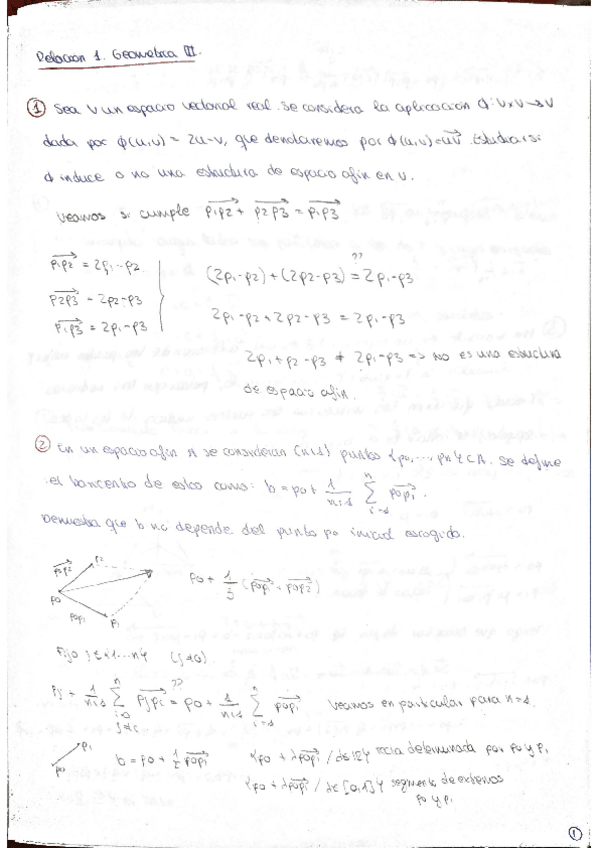 Relacion 1. Geometria III.
① Sea V un espacio vectorial real. Se considera la aplicacion ϕ: V×V → V
dada por ϕ(u,v) = 2u-v, que denotaremos por ϕ(u,v) = uv. Estudiar si
ϕ induce o no una estructura de espacio afin en V.
Veamos si cumple p1p2 + p2p3 = p1p3
p1p2 = 2p1-p2
p2p3 = 2p2-p3
p1p3 = 2p1-p3
(2p1-p2) + (2p2-p3) =?? 2p1-p3
2p1-p2+2p2-p3 = 2p1-p3
2p1+p2-p3 ≠ 2p1-p3 => No es una estructura
de espacio afin.
② En un espacio afin A se consideran (n+1) puntos {p0,... pn} ⊂ A. Se define
el baricentro de estos como: b = p0 + 1/(n+1) Σ(i=1, n) p0pi.
Demuestra que b no depende del punto p0 inicial escogido.
p0p2 p2
p0 p0p1 p1
p0 + 1/3 (p0p1 + p0p2)
Fijo j ∈ {1...n} (j≠0).
pj + 1/(n+1) Σ(i=0, j≠i, n) pjpi =?? p0 + 1/(n+1) Σ(i=1, n) p0pi Veamos en particular para n=1.
p0 p1
b = p0 + 1/2 p0p1 {p0 + λp0p1 / λ∈ℝ} recta determinada por p0 y p1
{p0 + λp0p1 / λ∈[0,1]} segmento de extremos
p0 y p1
①